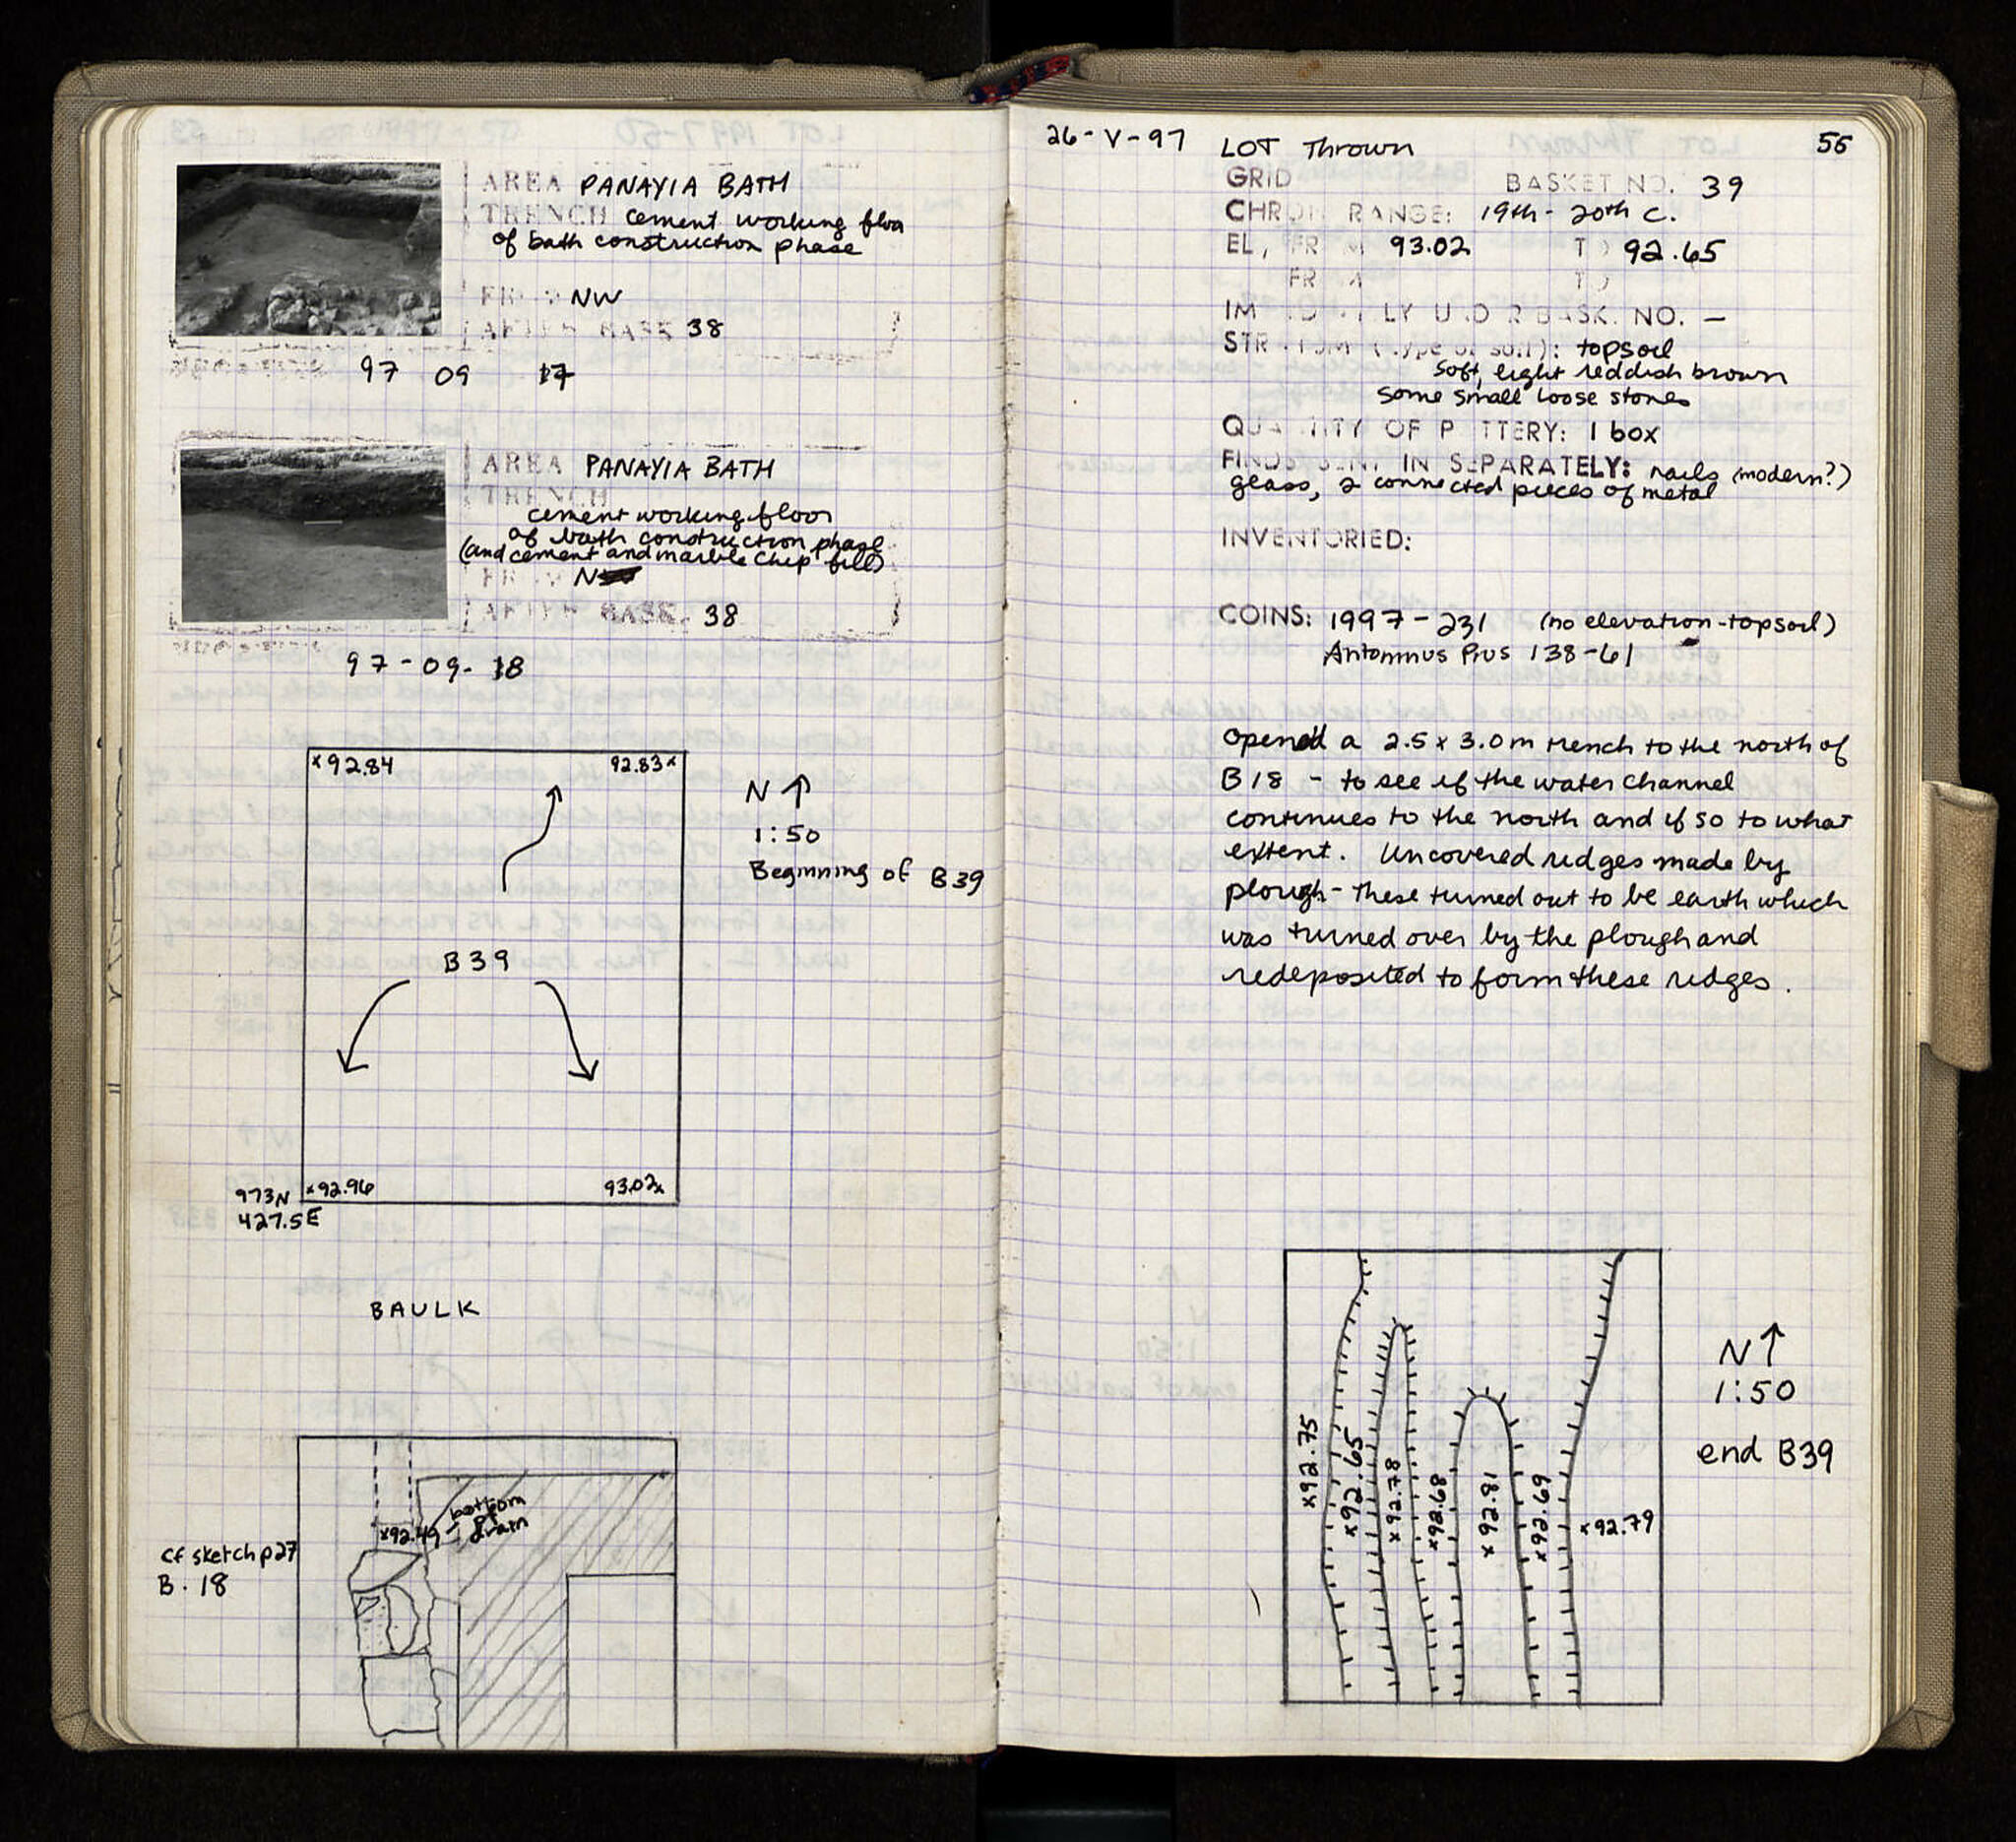 AREA PANAYIA BATH
TRENCH cement working floor
of bath construction phase
FROM NW
AFTER BASK 38
97 09 17
AREA PANAYIA BATH
TRENCH
cement working floor
of bath construction phase
(and cement and marble chip fill)
FROM N
AFTER BASK. 38
97-09-18
x92.84 92.83x
N ↑
1:50
Beginning of B39
B39
x92.96 93.02x
973N
427.5E
BAULK
bottom
of
drain
x92.49
cf sketch p27
B. 18
26-V-97 LOT Thrown 55
GRID BASKET NO. 39
CHRON RANGE: 19th-20th C.
EL, FROM 93.02 TO 92.65
FROM TO
IMMEDIATELY UNDER BASK. NO. —
STRATUM (type of soil): topsoil
soft, light reddish brown
some small loose stones
QUANTITY OF POTTERY: 1 box
FINDS SENT IN SEPARATELY: nails (modern?)
glass, 2 connected pieces of metal
INVENTORIED:
COINS: 1997-231 (no elevation-topsoil)
Antoninus Pius 138-61
Opened a 2.5 x 3.0m trench to the north of
B18 - to see if the water channel
continues to the north and if so to what
extent. Uncovered ridges made by
plough - These turned out to be earth which
was turned over by the plough and
redeposited to form these ridges.
N↑
1:50
end B39
x92.75
x92.65
x92.78
x92.68
x92.81
x92.69
x92.79